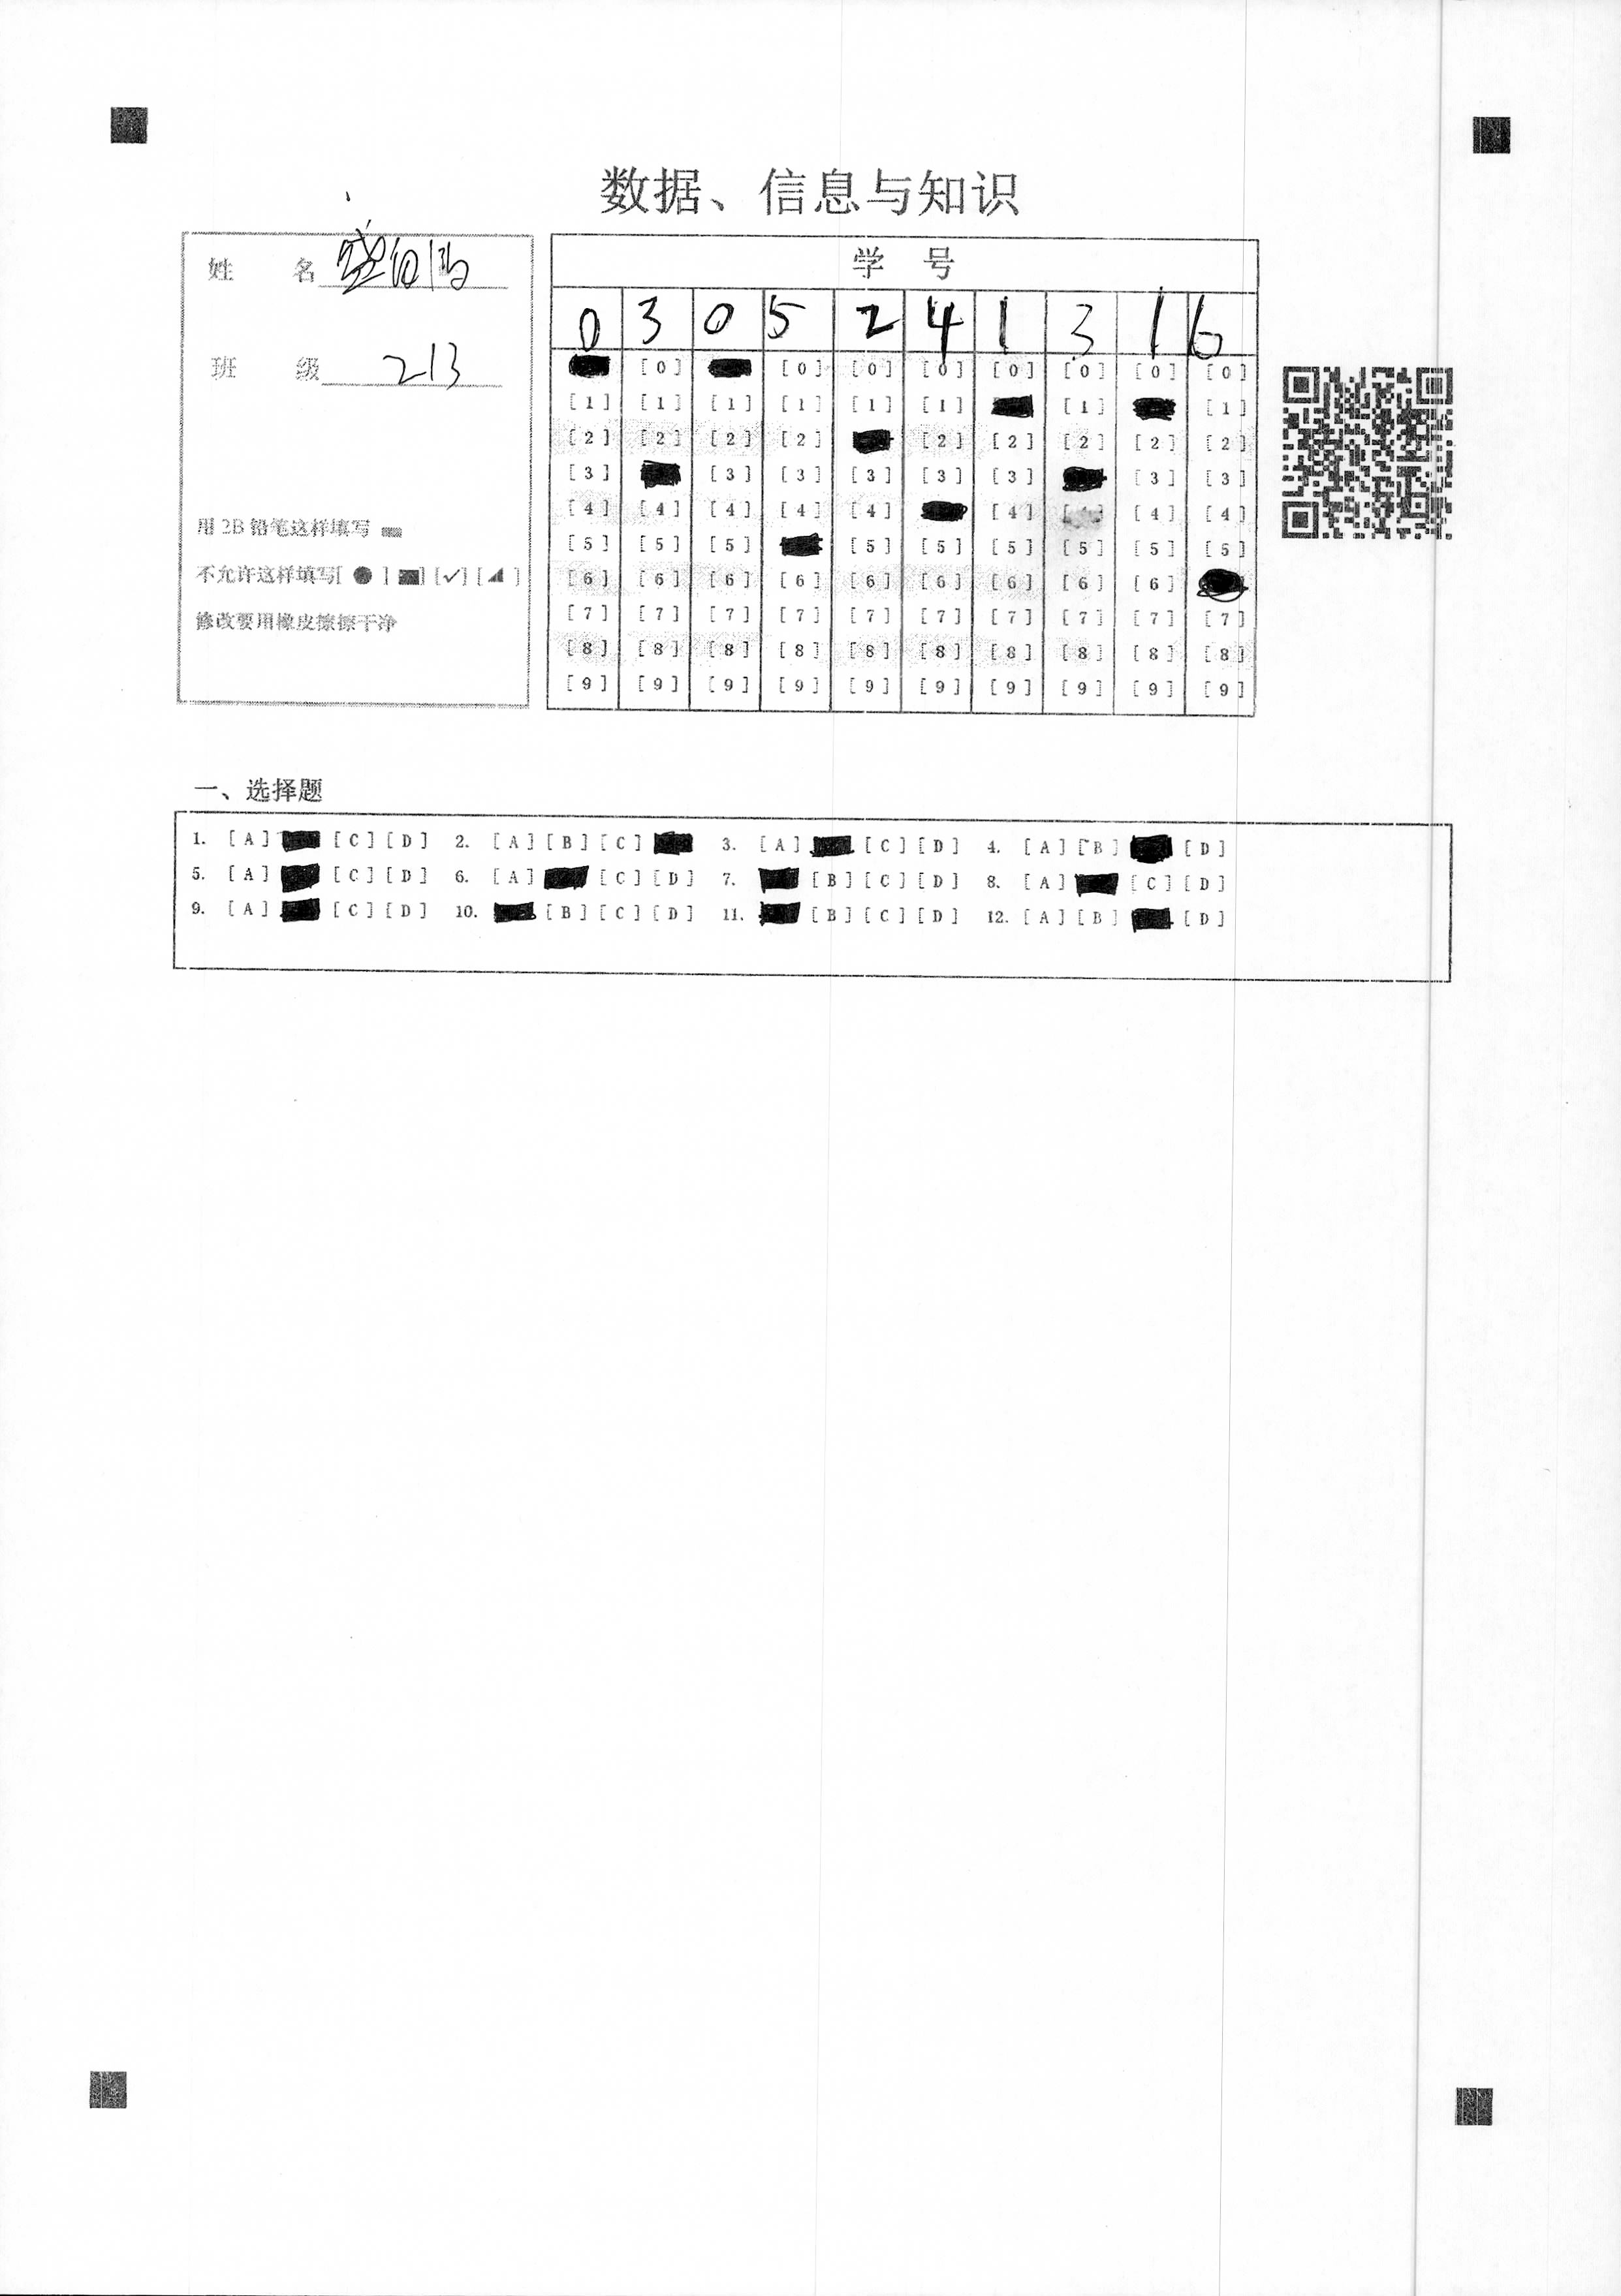 数据、信息与知识
姓 名
班 级 213
用 2B 铅笔这样填写
不允许这样填写[ ● ] ■] [✓] [◢ ]
修改要用橡皮擦擦干净
学 号
0 3 0 5 2 4 1 3 1 6
[0] [0] [0] [0] [0] [0] [0] [0]
[1] [1] [1] [1] [1] [1] [1] [1]
[2] [2] [2] [2] [2] [2] [2] [2] [2]
[3] [3] [3] [3] [3] [3] [3] [3]
[4] [4] [4] [4] [4] [4] [4] [4]
[5] [5] [5] [5] [5] [5] [5] [5] [5]
[6] [6] [6] [6] [6] [6] [6] [6] [6]
[7] [7] [7] [7] [7] [7] [7] [7] [7] [7]
[8] [8] [8] [8] [8] [8] [8] [8] [8] [8]
[9] [9] [9] [9] [9] [9] [9] [9] [9] [9]
一、选择题
1. [A] [C] [D] 2. [A] [B] [C] 3. [A] [C] [D] 4. [A] [B] [D]
5. [A] [C] [D] 6. [A] [C] [D] 7. [B] [C] [D] 8. [A] [C] [D]
9. [A] [C] [D] 10. [B] [C] [D] 11. [B] [C] [D] 12. [A] [B] [D]